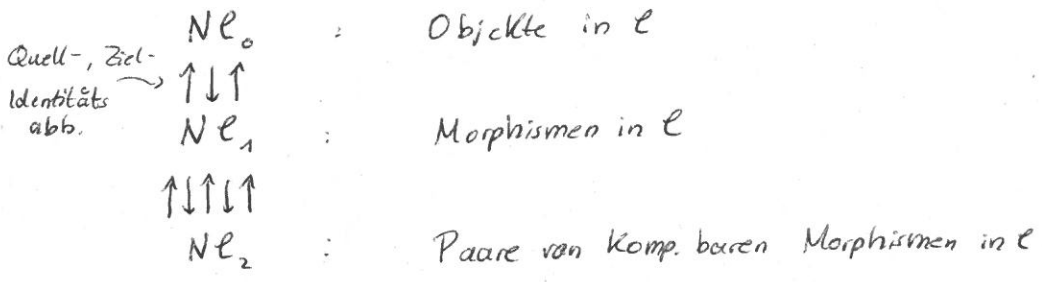 N𝒞₀ : Objekte in 𝒞
Quell-, Ziel-
Identitäts
abb.
↑↓↑
N𝒞₁ : Morphismen in 𝒞
↑↓↑↓↑
N𝒞₂ : Paare von komp. baren Morphismen in 𝒞